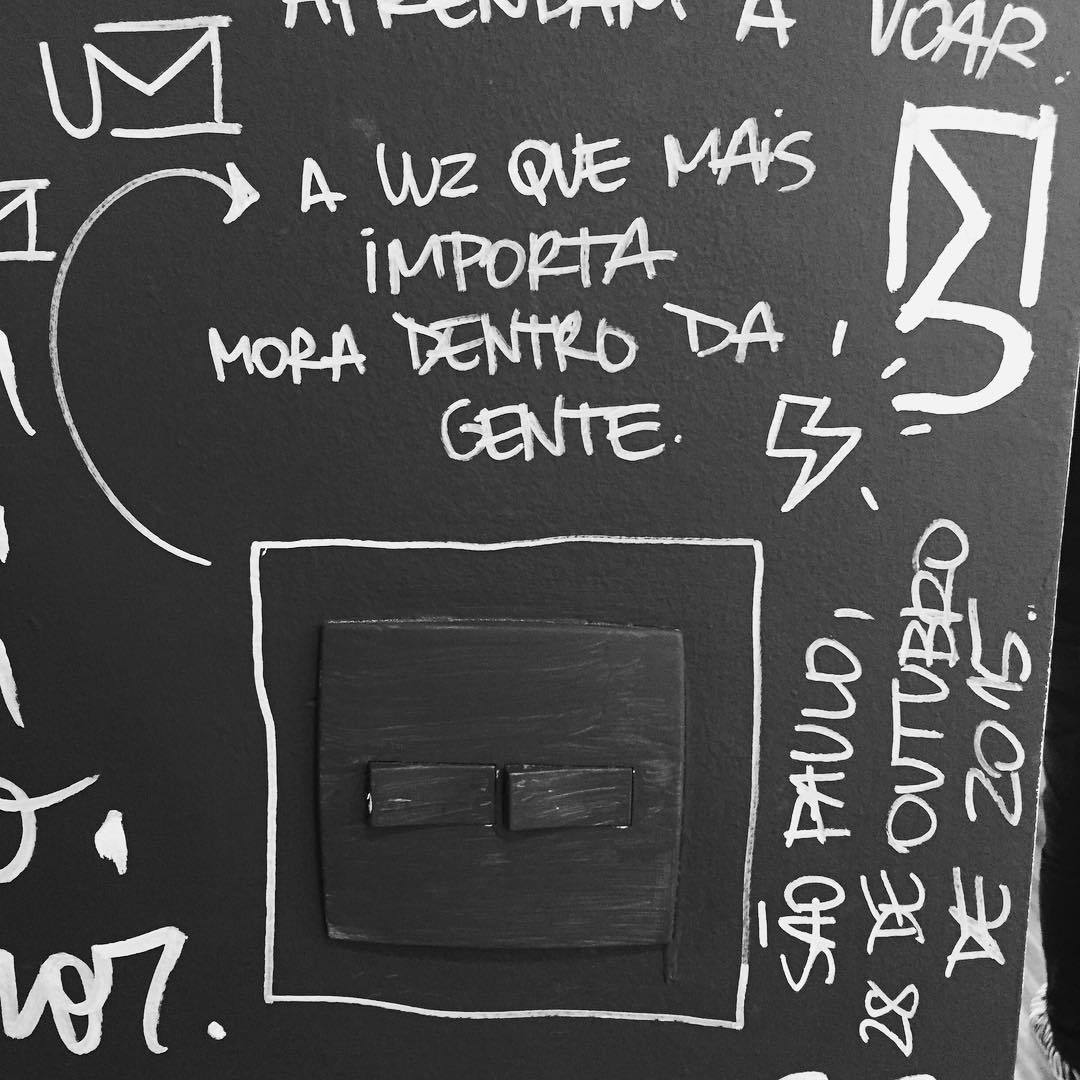 APRENDAM A VOAR.
A LUZ QUE MAiS
iMPORTA
MORA DENTRO DA
GENTE.
SÃO PAULO,
28 DE OUTUBRO
DE 2015.